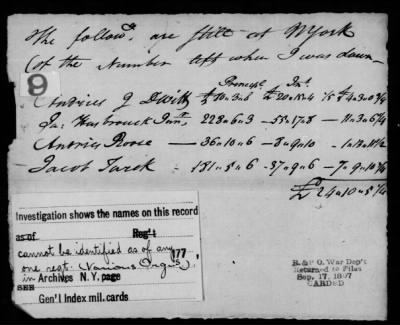 The follow.g are still at N York
of the Number left when I was down
9
Principl. Int.
Andries J DWitt
Jas. Hasbrouck Junr. 223 " 6 " 3 — 55 " 17 " 8 — 11 " 3 " 6 1/4
Andries Roose — 36 " 10 " 6 — 8 " 9 " 10
Jacob Turck — 151 " 5 " 6 — 37 " 9 " 6 — 7 " 9 " 10
£ 24 " 10 " 5 1/4
Investigation shows the names on this record
as of Reg't
cannot be identified as of any 177 ,
one regt. (Various Orgns)
in Archives N. Y. page
SEE
Gen'l Index mil. cards
R. & P. O. War Dep't
Returned to Files
Sep. 17, 1897
CARDED